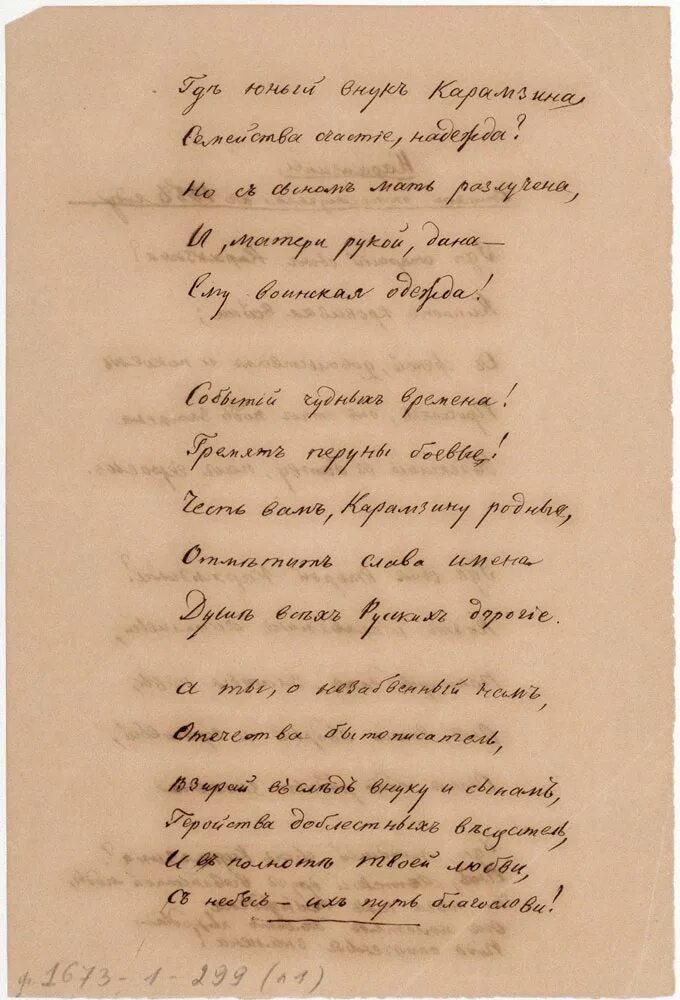 Гдѣ юный внукъ Карамзина,
Семейства счастіе, надежда?
Но съ сыномъ мать разлучена,
И, матери рукой, дана —
Ему воинская одежда!
Событій чудныхъ времена!
Гремятъ перуны боевые!
Честь вамъ, Карамзину родные,
Отмѣтитъ слава имена
Душѣ всѣхъ Русскихъ дорогіе.
а ты, о незабвенный намъ,
Отечества бытописатель,
Взирай въ слѣдъ внуку и сынамъ,
Геройства доблестныхъ
И въ полнотѣ твоей любви,
Съ небесъ — ихъ путь благослови!
ф. 1673-1-299 (л1)